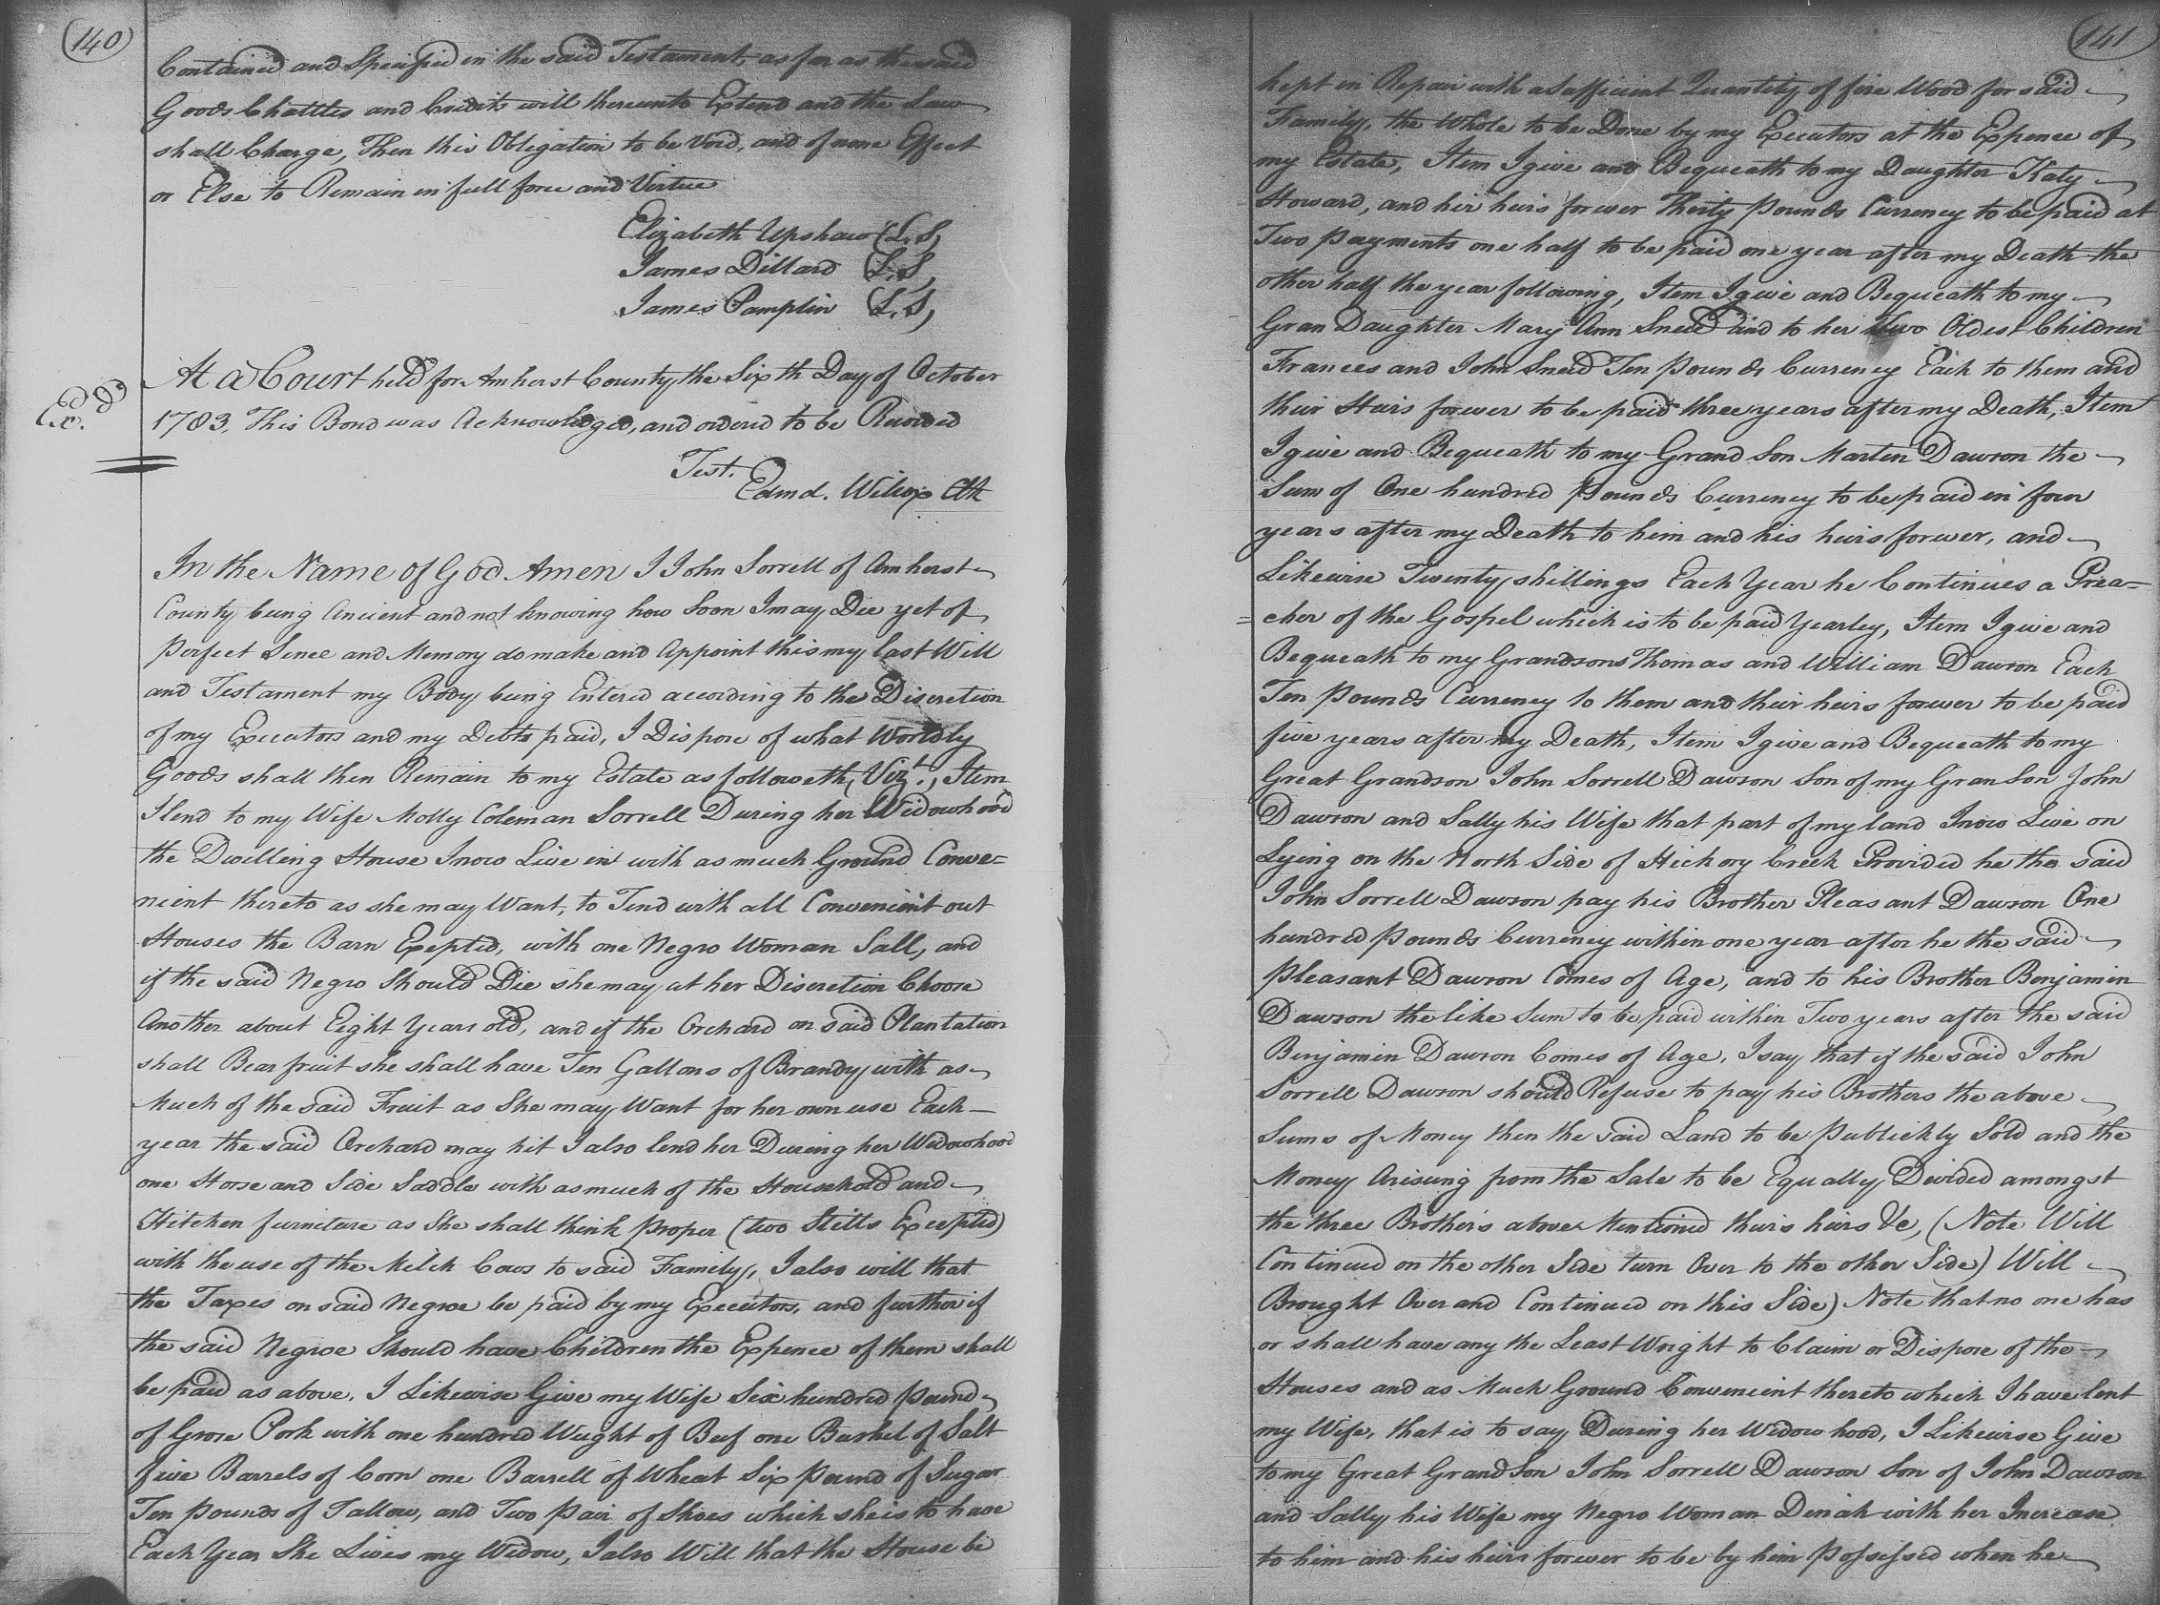 (140)
Contained and Specified in the said Testament, as far as the said
Goods Chattles and Credits will thereunto Extend and the Law
shall Charge, Then this Obligation to be Void, and of none Effect
or Else to Remain in full force and Virtue
Elizabeth Upshaw (L.S)
James Dillard (L.S)
James Pamplin (L.S)
At a Court held for Amherst County the Sixth Day of October
1783, This Bond was Acknowledged, and ordered to be Recorded
Ex.d
Test.
Edmd. Wilcox Clk
In the Name of God Amen I John Sorrell of Amherst
County being Ancient and not knowing how Soon I may Die yet of
Perfect Sence and Memory do make and Appoint this my last Will
and Testament my Body being Entered according to the Discretion
of my Executors and my Debts paid, I Dispose of what Worldly
Goods shall then Remain to my Estate as followeth, Vizt., Item
I lend to my Wife Molly Coleman Sorrell During her Widowhood
the Dwelling House I now Live in with as much Ground Conve=
nient thereto as she may Want, to Tend with all Convenient out
Houses the Barn Exepted, with one Negro Woman Sall, and
if the said Negro Should Die she may at her Discretion Choose
Another about Eight Years old, and if the Orchard on said Plantation
shall Bear fruit she shall have Ten Gallons of Brandy with as
Much of the said Fruit as She may Want for her own use Each
year the said Orchard may hit I also lend her During her Widowhood
one Horse and Side Saddle with as much of the Household and
Kitchen furniture as She shall think proper (two Stills Excepted)
with the use of the Milch Cows to said Family, I also will that
the Taxes on said Negroe be paid by my Executors, and further if
the said Negroe Should have Children the Expence of them shall
be paid as above, I Likewise Give my Wife Six hundred pound
of Grose Pork with one hundred Weight of Beef one Bushel of Salt
five Barrels of Corn one Barrell of Wheat Six pound of Sugar
Ten pounds of Tallow, and Two pair of Shoes which she is to have
Each Year She Lives my Widow, I also Will that the House be
(141)
kept in Repair with a Sufficient Quantity of fire Wood for said
Family, the Whole to be Done by my Executors at the Expence of
my Estate, Item I give and Bequeath to my Daughter Katy
Howard, and her heirs forever Thirty pounds Currency to be paid at
Two payments one half to be paid one year after my Death the
other half the year following, Item I give and Bequeath to my
Gran Daughter Mary Ann Snead and to her Two Oldest Children
Frances and John Snead Ten pounds Currency Each to them and
their Heirs forever to be paid three years after my Death, Item
I give and Bequeath to my Grand Son Martin Dawson the
Sum of One hundred pounds Currency to be paid in four
years after my Death to him and his heirs forever, and
Likewise Twenty shillings Each Year he Continues a Prea=
=cher of the Gospel which is to be paid Yearley, Item I give and
Bequeath to my Grandsons Thomas and William Dawson Each
Ten pounds Currency to them and their heirs forever to be paid
five years after my Death, Item I give and Bequeath to my
Great Grandson John Sorrell Dawson Son of my Gran Son John
Dawson and Sally his Wife that part of my land I now Live on
Lying on the North Side of Hickory Creek Provided he the said
John Sorrell Dawson pay his Brother Pleasant Dawson One
hundred pounds Currency within one year after he the said
Pleasant Dawson Comes of Age, and to his Brother Benjamin
Dawson the like Sum to be paid within Two years after the said
Benjamin Dawson Comes of Age, I say that if the said John
Sorrell Dawson should Refuse to pay his Brothers the above
Sums of Money then the said Land to be Publickly Sold and the
Money Arising from the Sale to be Equally Devided amongst
the three Brother's above Mentioned theirs heirs &c, (Note Will
Continued on the other Side turn Over to the other Side) Will
Brought Over and Continued on this Side) Note that no one has
or shall have any the Least Wright to Claim or Dispose of the
Houses and as Much Ground Convenient thereto which I have lent
my Wife, that is to say During her Widow hood, I Likewise Give
to my Great Grand Son John Sorrell Dawson Son of John Dawson
and Sally his Wife my Negro Woman Dinah with her Increase
to him and his heirs forever to be by him possessed when he